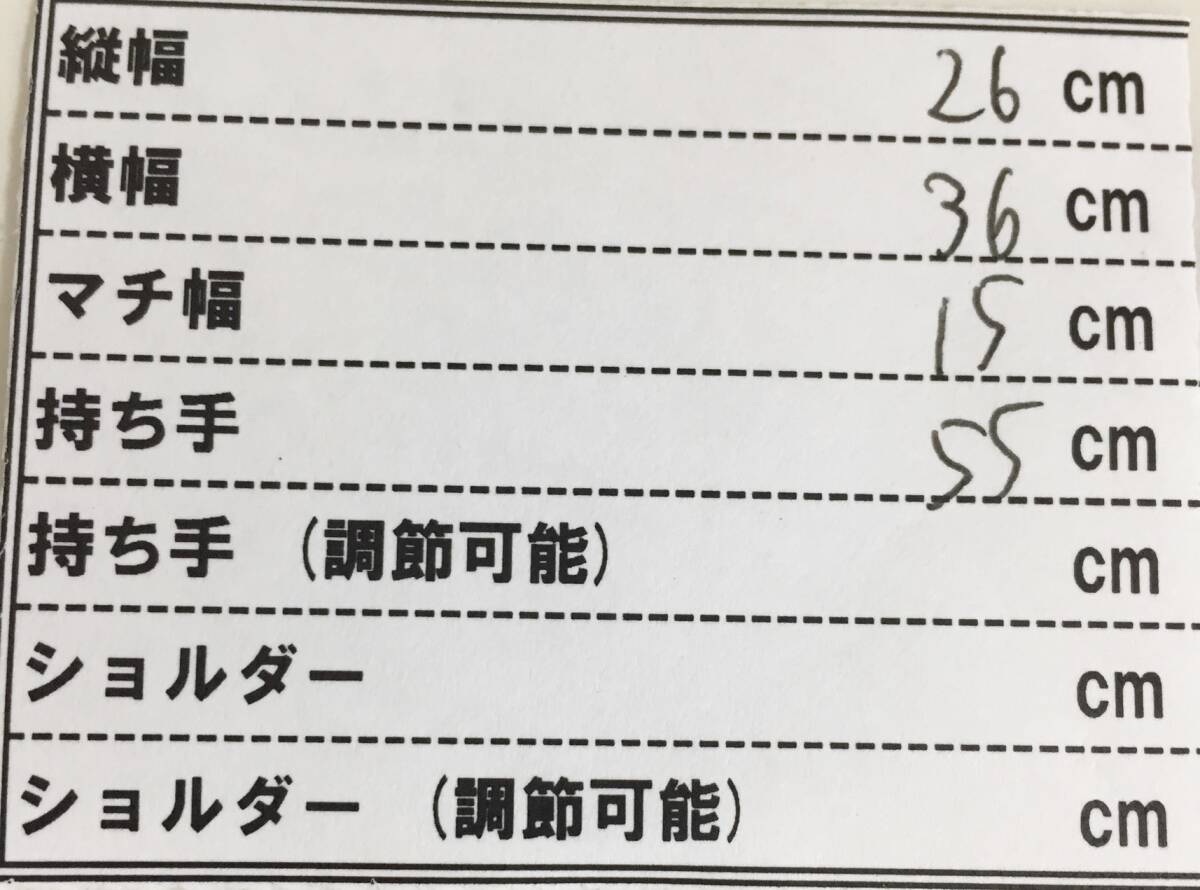 縦幅 26 cm
横幅 36 cm
マチ幅 15 cm
持ち手 55 cm
持ち手 (調節可能) cm
ショルダー cm
ショルダー (調節可能) cm